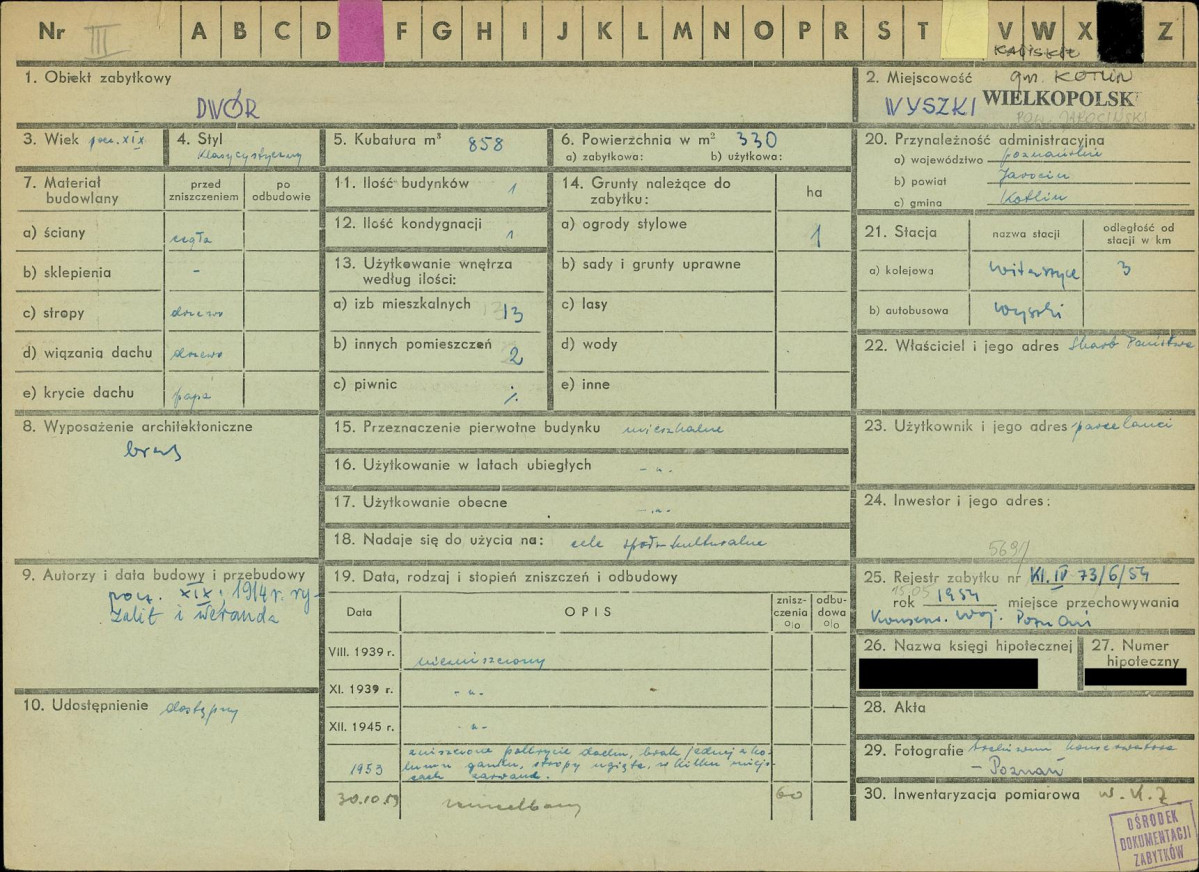 Nr III A B C D F G H I J K L M N O P R S T V W X Z
KALISKIE
1. Obiekt zabytkowy
DWÓR
2. Miejscowość gm. KOTLIN
WYSZKI WIELKOPOLSK
POW. JAROCIŃSKI
3. Wiek pocz. XIX
4. Styl
klasycystyczny
5. Kubatura m³ 858
6. Powierzchnia w m² 330
a) zabytkowa: b) użytkowa:
20. Przynależność administracyjna
a) województwo poznańskie
b) powiat Jarocin
c) gmina Kotlin
7. Materiał budowlany
przed zniszczeniem
po odbudowie
a) ściany cegła
b) sklepienia -
c) stropy drzewo
d) wiązania dachu drzewo
e) krycie dachu papa
11. Ilość budynków 1
12. Ilość kondygnacji 1
13. Użytkowanie wnętrza
według ilości:
a) izb mieszkalnych 13
b) innych pomieszczeń 2
c) piwnic ·/.
14. Grunty należące do
zabytku:
ha
a) ogrody stylowe 1
b) sady i grunty uprawne
c) lasy
d) wody
e) inne
21. Stacja
nazwa stacji
odległość od
stacji w km
a) kolejowa Witaszyce 3
b) autobusowa Wyszki
22. Właściciel i jego adres Skarb Państwa
8. Wyposażenie architektoniczne
brak
15. Przeznaczenie pierwotne budynku mieszkalne
16. Użytkowanie w latach ubiegłych -"-
17. Użytkowanie obecne -"-
18. Nadaje się do użycia na: cele społ. kulturalne
23. Użytkownik i jego adres parcelanci
24. Inwestor i jego adres:
569/
9. Autorzy i data budowy i przebudowy
pocz. XIX; 1914 r. ry-
zalit i weranda
19. Data, rodzaj i stopień zniszczeń i odbudowy
Data
OPIS
znisz-
czenia
%
odbu-
dowa
%
VIII. 1939 r. niezniszczony
XI. 1939 r. -"-
XII. 1945 r. -"-
1953 zniszczone pokrycie dachu, brak jednej z ko-
lumn ganku, stropy ugięte, w kilku miejs-
cach zarwane.
30.10.59 60
25. Rejestr zabytku nr Kl. IV 73/6/54
15.05
rok 1954 miejsce przechowywania
Konserw. Woj. Poznań
26. Nazwa księgi hipotecznej
27. Numer
hipoteczny
10. Udostępnienie dostępny
28. Akta
29. Fotografie Archiwum Konserwatora
- Poznań
30. Inwentaryzacja pomiarowa w. K. Z
OŚRODEK
DOKUMENTACJI
ZABYTKÓW